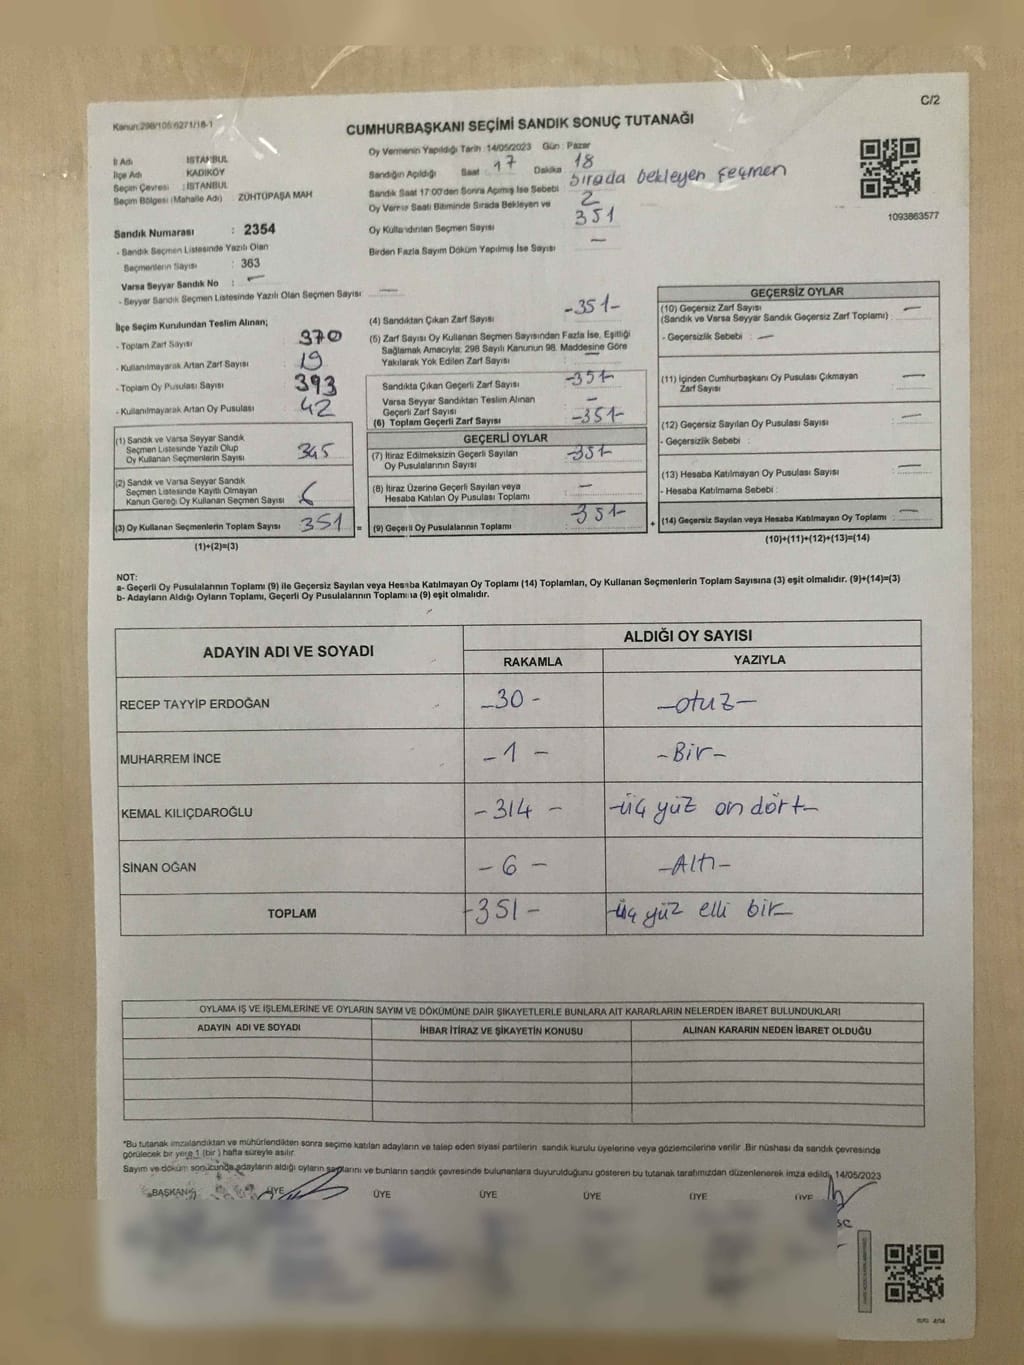 C/2
Kanun:298/105:6271/18-1
CUMHURBAŞKANI SEÇİMİ SANDIK SONUÇ TUTANAĞI
İl Adı : İSTANBUL
İlçe Adı : KADIKÖY
Seçim Çevresi : İSTANBUL
Seçim Bölgesi (Mahalle Adı) : ZÜHTÜPAŞA MAH
Oy Vermenin Yapıldığı Tarih :14/05/2023 Gün : Pazar
Sandığın Açıldığı Saat : 17 Dakika : 18
Sandık Saat 17:00'den Sonra Açılmış İse Sebebi : Sırada bekleyen seçmen
Oy Verme Saati Bitiminde Sırada Bekleyen ve : 2
Oy Kullandırılan Seçmen Sayısı : 351
Birden Fazla Sayım Döküm Yapılmış İse Sayısı : —
1093863577
Sandık Numarası : 2354
- Sandık Seçmen Listesinde Yazılı Olan
Seçmenlerin Sayısı : 363
Varsa Seyyar Sandık No : —
- Seyyar Sandık Seçmen Listesinde Yazılı Olan Seçmen Sayısı : —
İlçe Seçim Kurulundan Teslim Alınan;
- Toplam Zarf Sayısı : 370
- Kullanılmayarak Artan Zarf Sayısı : 19
- Toplam Oy Pusulası Sayısı : 393
- Kullanılmayarak Artan Oy Pusulası : 42
(1) Sandık ve Varsa Seyyar Sandık
Seçmen Listesinde Yazılı Olup
Oy Kullanan Seçmenlerin Sayısı : 345
(2) Sandık ve Varsa Seyyar Sandık
Seçmen Listesinde Kayıtlı Olmayan
Kanun Gereği Oy Kullanan Seçmen Sayısı : 6
(3) Oy Kullanan Seçmenlerin Toplam Sayısı : 351 =
(1)+(2)=(3)
(4) Sandıktan Çıkan Zarf Sayısı : -351-
(5) Zarf Sayısı Oy Kullanan Seçmen Sayısından Fazla İse, Eşitliği
Sağlamak Amacıyla; 298 Sayılı Kanunun 98. Maddesine Göre
Yakılarak Yok Edilen Zarf Sayısı : —
Sandıkta Çıkan Geçerli Zarf Sayısı : -351-
Varsa Seyyar Sandıktan Teslim Alınan
Geçerli Zarf Sayısı : —
(6) Toplam Geçerli Zarf Sayısı : -351-
GEÇERLİ OYLAR
(7) İtiraz Edilmeksizin Geçerli Sayılan
Oy Pusulalarının Sayısı : -351-
(8) İtiraz Üzerine Geçerli Sayılan veya
Hesaba Katılan Oy Pusulası Toplamı : —
(9) Geçerli Oy Pusulalarının Toplamı : -351- +
GEÇERSİZ OYLAR
(10) Geçersiz Zarf Sayısı
(Sandık ve Varsa Seyyar Sandık Geçersiz Zarf Toplamı) : —
- Geçersizlik Sebebi : —
(11) İçinden Cumhurbaşkanı Oy Pusulası Çıkmayan
Zarf Sayısı : —
(12) Geçersiz Sayılan Oy Pusulası Sayısı : —
- Geçersizlik Sebebi :
(13) Hesaba Katılmayan Oy Pusulası Sayısı : —
- Hesaba Katılmama Sebebi :
(14) Geçersiz Sayılan veya Hesaba Katılmayan Oy Toplamı : —
(10)+(11)+(12)+(13)=(14)
NOT:
a- Geçerli Oy Pusulalarının Toplamı (9) ile Geçersiz Sayılan veya Hesaba Katılmayan Oy Toplamı (14) Toplamları, Oy Kullanan Seçmenlerin Toplam Sayısına (3) eşit olmalıdır. (9)+(14)=(3)
b- Adayların Aldığı Oyların Toplamı, Geçerli Oy Pusulalarının Toplamına (9) eşit olmalıdır.
ADAYIN ADI VE SOYADI
ALDIĞI OY SAYISI
RAKAMLA YAZIYLA
RECEP TAYYİP ERDOĞAN -30- -otuz-
MUHARREM İNCE -1- -Bir-
KEMAL KILIÇDAROĞLU -314- -üç yüz on dört-
SİNAN OĞAN -6- -Altı-
TOPLAM -351- -üç yüz elli bir-
OYLAMA İŞ VE İŞLEMLERİNE VE OYLARIN SAYIM VE DÖKÜMÜNE DAİR ŞİKAYETLERLE BUNLARA AİT KARARLARIN NELERDEN İBARET BULUNDUKLARI
ADAYIN ADI VE SOYADI İHBAR İTİRAZ VE ŞİKAYETİN KONUSU ALINAN KARARIN NEDEN İBARET OLDUĞU
*Bu tutanak imzalandıktan ve mühürlendikten sonra seçime katılan adayların ve talep eden siyasi partilerin sandık kurulu üyelerine veya gözlemcilerine verilir. Bir nüshası da sandık çevresinde
görülecek bir yere 1 (bir) hafta süreyle asılır.
Sayım ve döküm sonucunda adayların aldığı oyların sayılarını ve bunların sandık çevresinde bulunanlara duyurulduğunu gösteren bu tutanak tarafımızdan düzenlenerek imza edildi. 14/05/2023
BAŞKAN ÜYE ÜYE ÜYE ÜYE ÜYE ÜYE